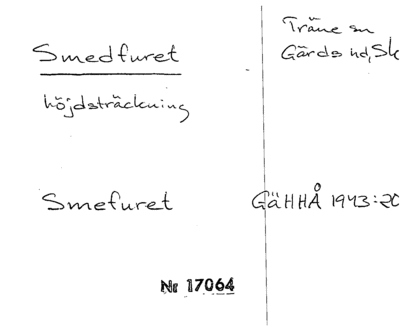 Smedfuret
höjdsträckning
Träne sn
Gärds hd, Sk
Smefuret
GäHHÅ 1943:20
Nr 17064